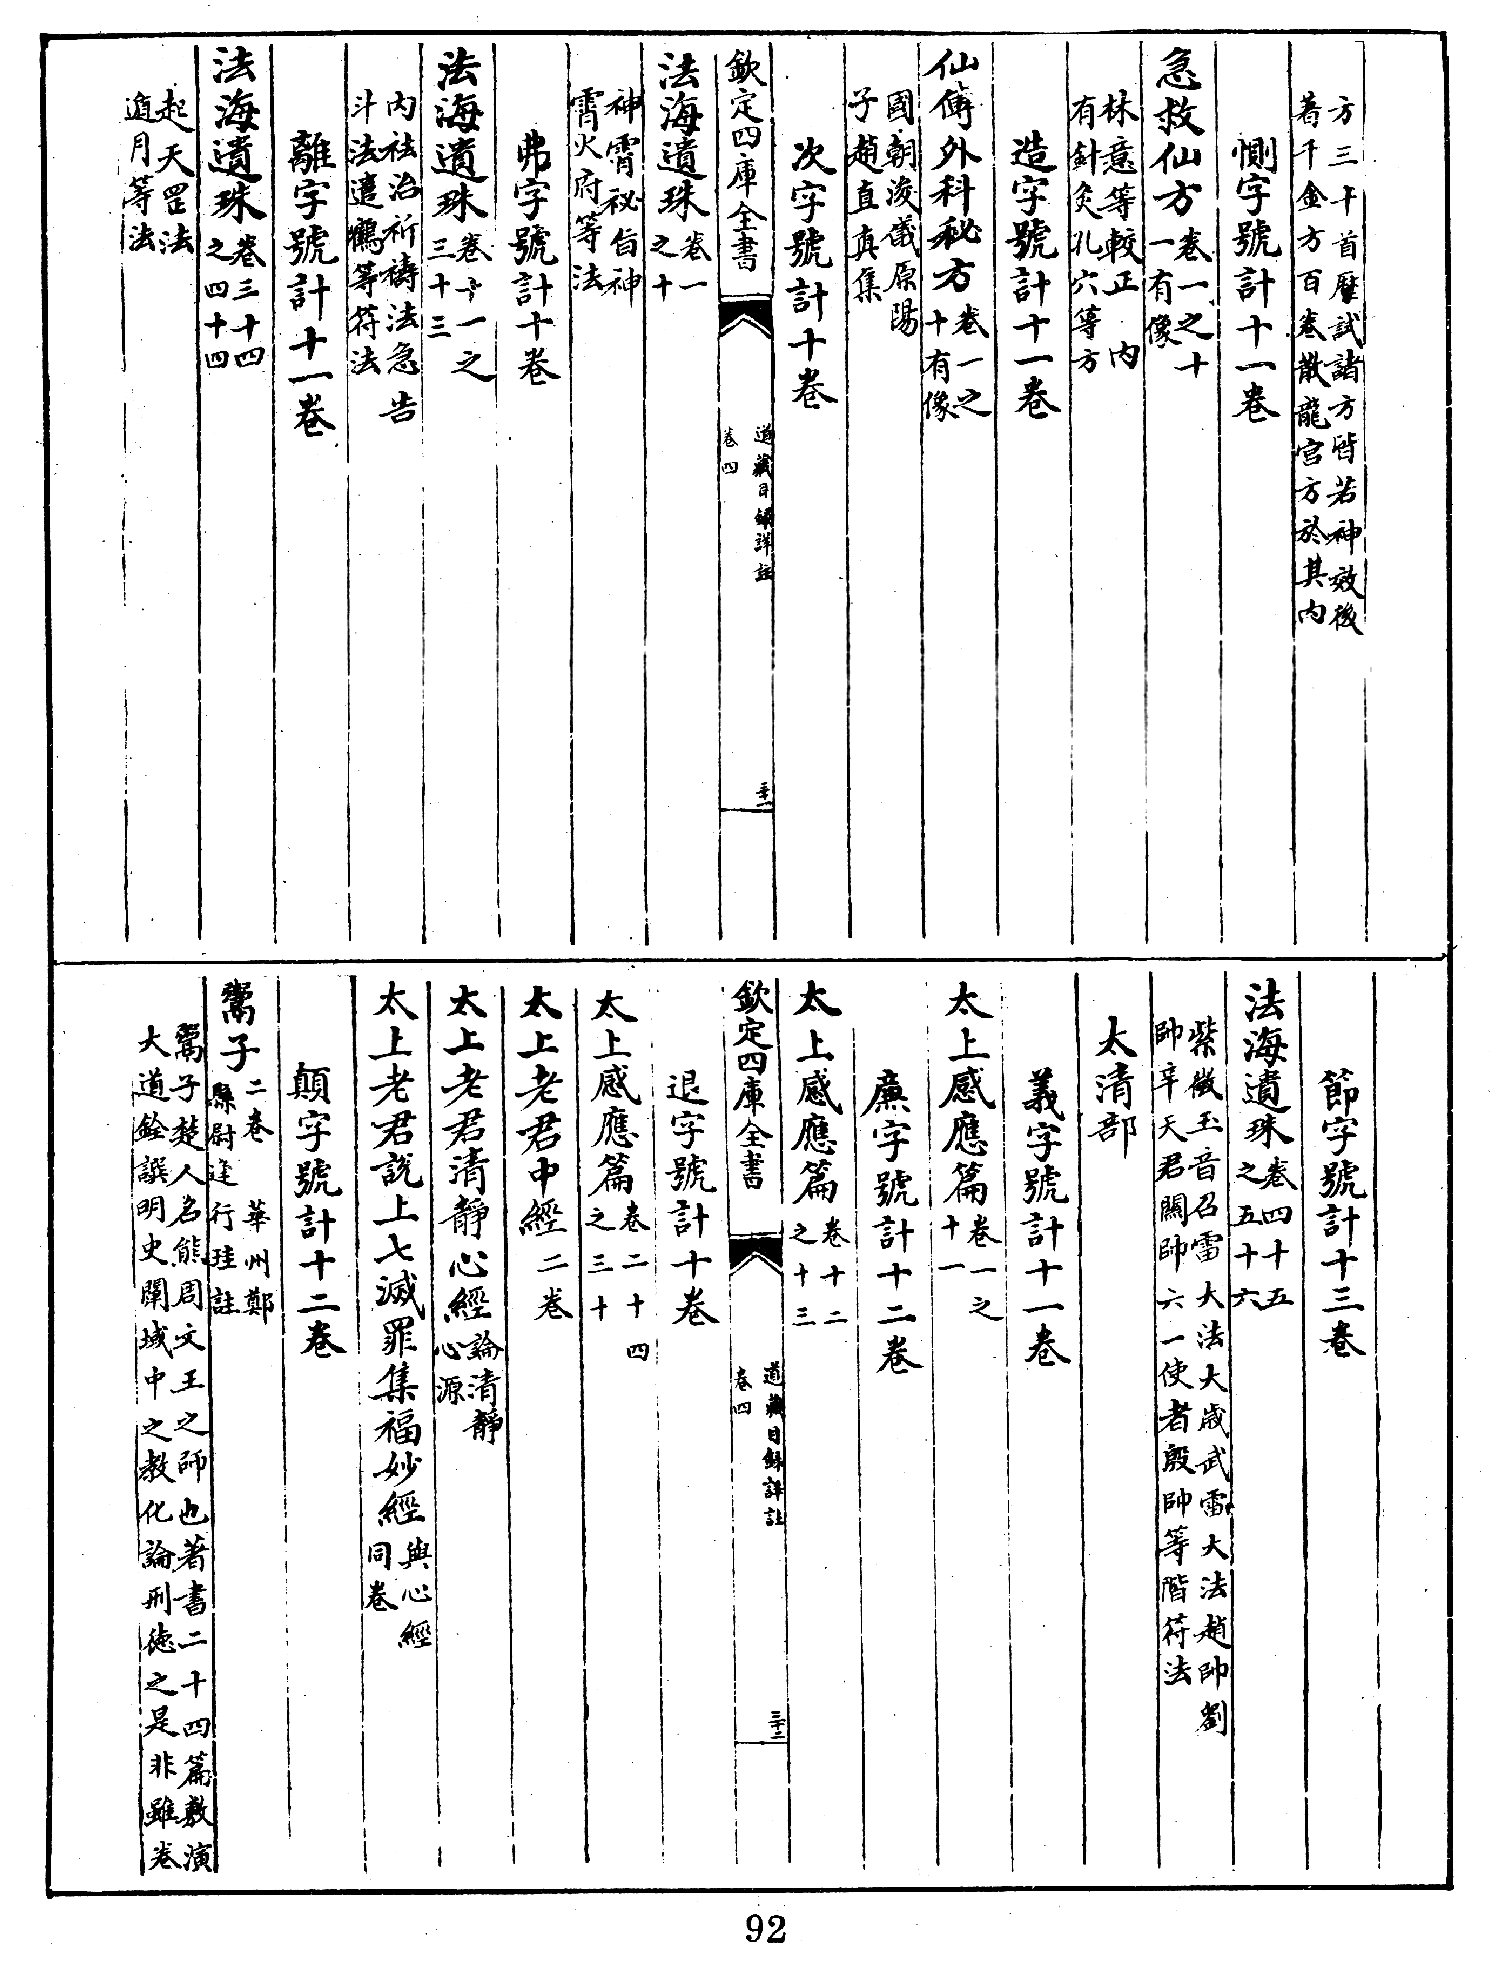 方三十首歷試諸方皆若神效後
著千金方百卷散龍宫方於其内
惻字號計十一卷
急救仙方卷一之十
一有像
林意等較正内
有針灸孔穴等方
造字號計十一卷
仙傳外科秘方卷一之
十有像
國朝浚儀原陽
子趙直真集
次字號計十卷
欽定四庫全書
道藏目録詳註
卷四
三十一
法海遺珠卷一
之十
神霄祕旨神
霄火府等法
弗字號計十卷
法海遺珠卷十一之
三十三
内祛治祈禱法急告
斗法遣鶴等符法
離字號計十一卷
法海遺珠卷三十四
之四十四
起天罡法
遁月等法
節字號計十三卷
法海遺珠卷四十五
之五十六
紫微玉音召雷大法大歲武雷大法趙帥劉
帥辛天君關帥六一使者殷帥等階符法
太清部
義字號計十一卷
太上感應篇卷一之
十一
廉字號計十二卷
太上感應篇卷十二
之十三
欽定四庫全書
道藏目録詳註
卷四
三十二
退字號計十卷
太上感應篇卷二十四
之三十
太上老君中經二卷
太上老君清靜心經論清靜
心源
太上老君說上七滅罪集福妙經與心經
同卷
顛字號計十二卷
鬻子二卷 華州鄭
縣尉逢行珪註
鬻子楚人名熊周文王之師也著書二十四篇敷演
大道銓譔明史闡域中之教化論刑徳之是非雖卷
92